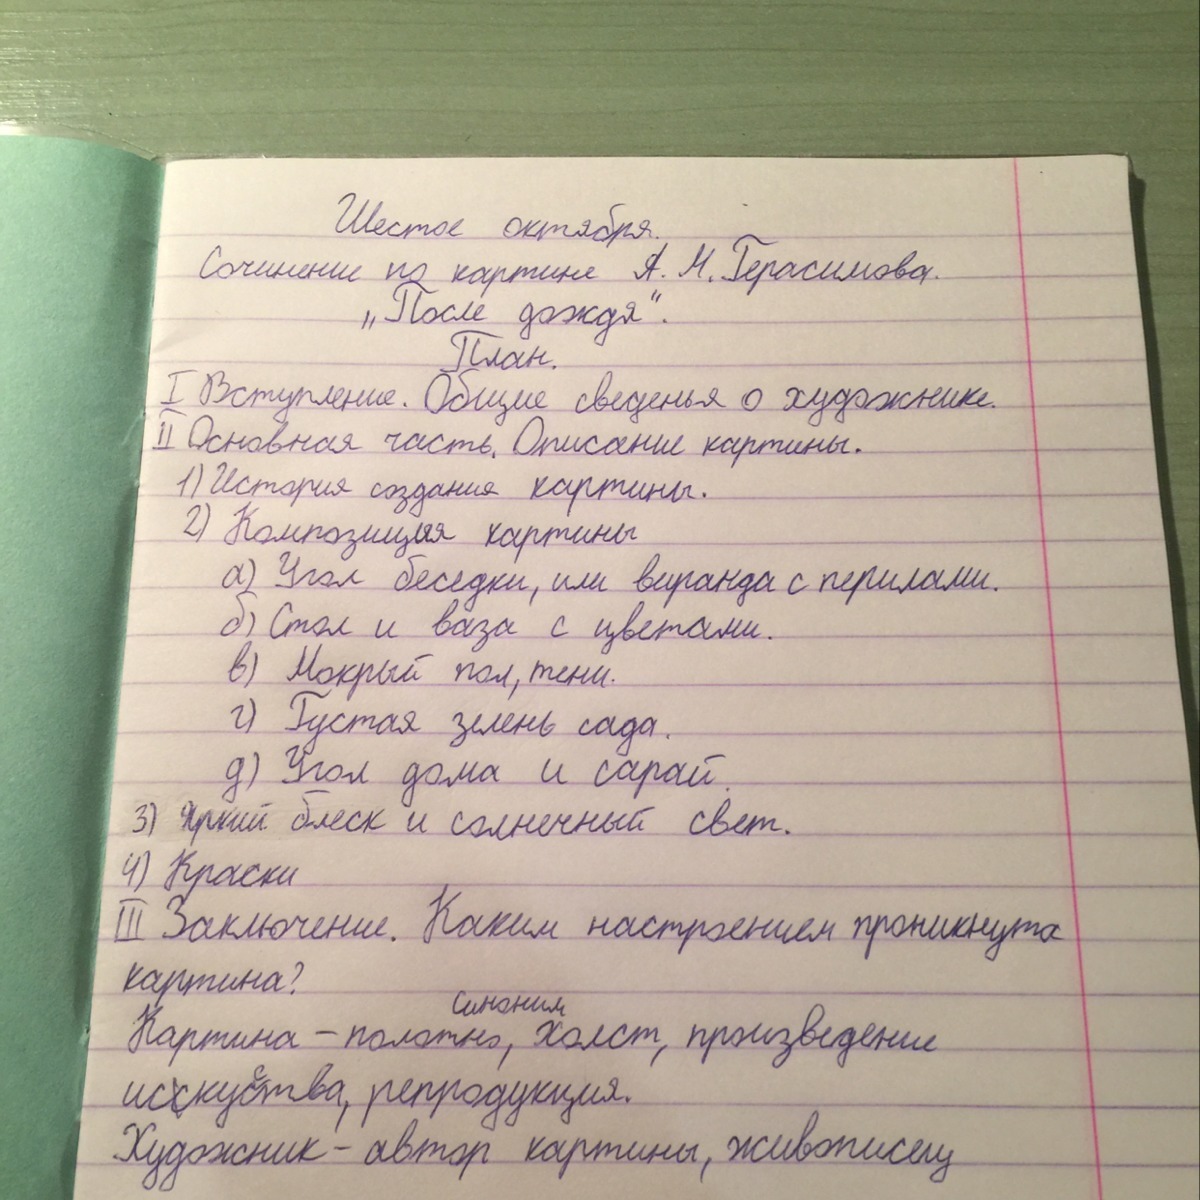 Шестое октября.
Сочинение по картине А. М. Герасимова.
„После дождя“.
План.
I Вступление. Общие сведенья о художнике.
II Основная часть. Описание картины.
1) История создания картины.
2) Композиция картины
а) Угол беседки, или виранда с перилами.
б) Стол и ваза с цветами.
в) Мокрый пол, тени.
г) Густая зелень сада.
д) Угол дома и сарай.
3) Яркий блеск и солнечный свет.
4) Краски
III Заключение. Каким настроением проникнута
картина?
синоним
Картина – полотно, холст, произведение
искуства, репродукция.
Художник – автор картины, живописец